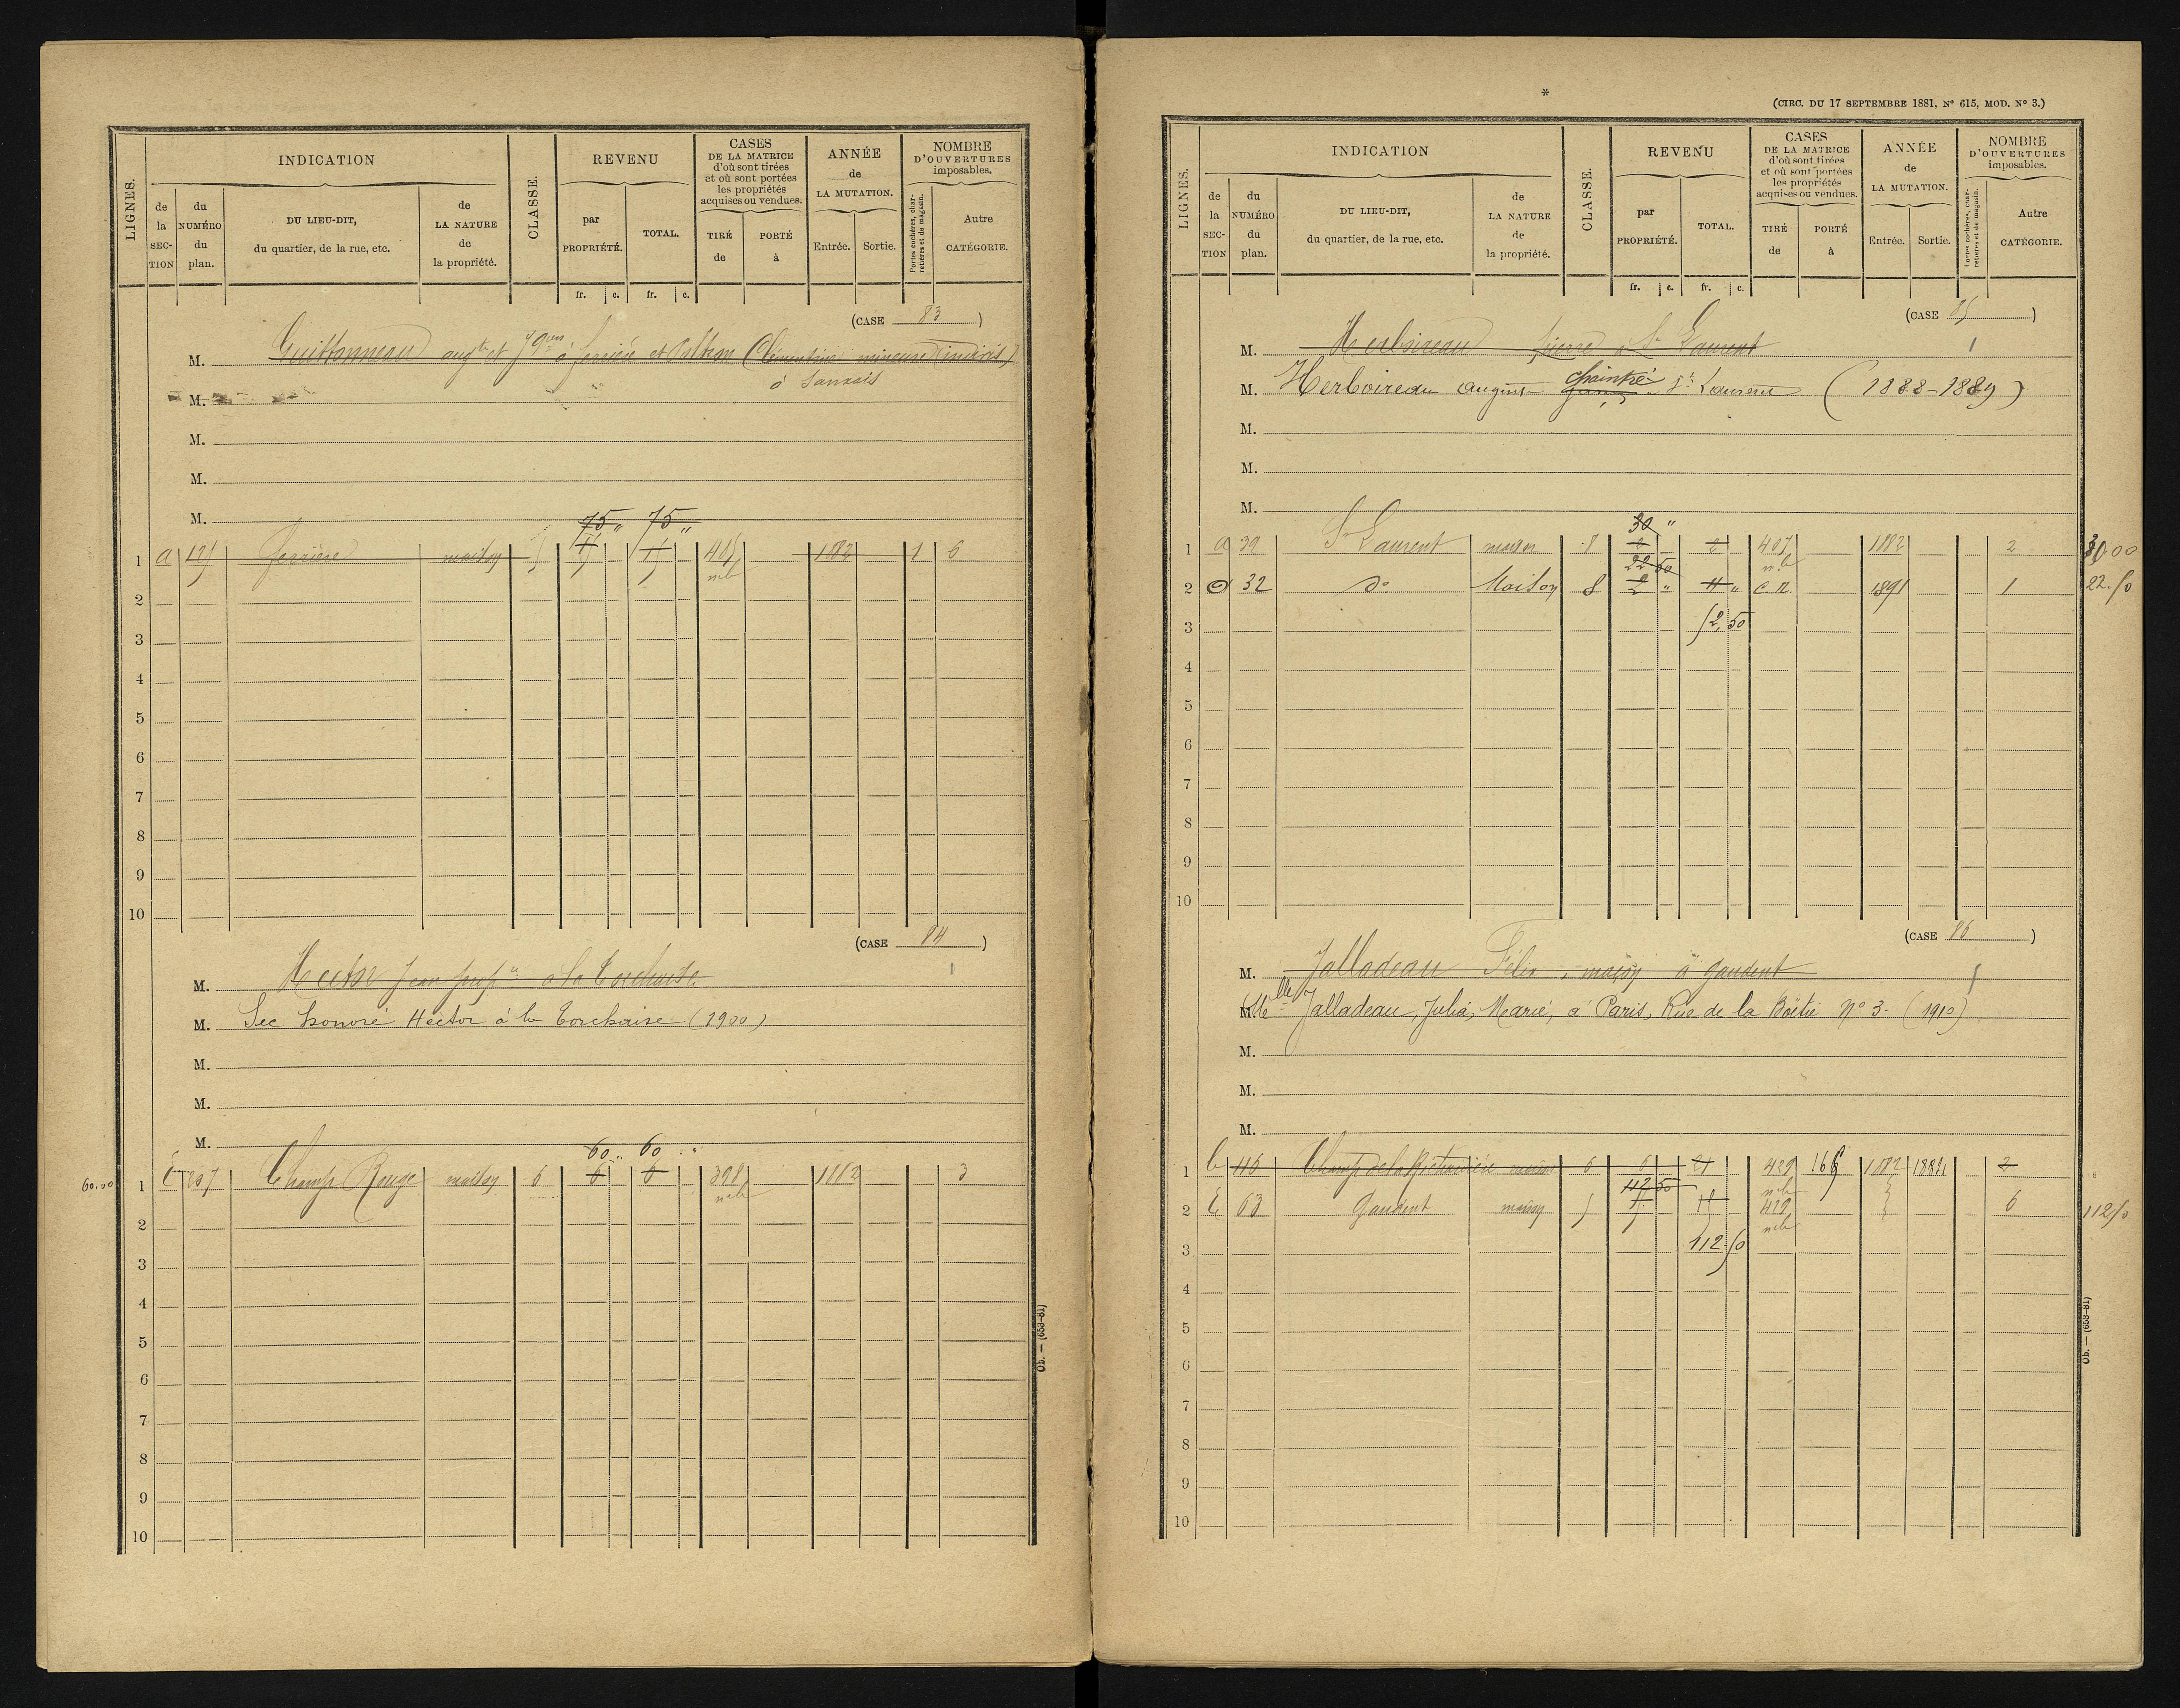 LIGNES.
INDICATION
de la SECTION
du NUMÉRO du plan.
DU LIEU-DIT, du quartier, de la rue, etc.
de LA NATURE de la propriété.
CLASSE.
REVENU
par PROPRIÉTÉ.
TOTAL.
CASES DE LA MATRICE d'où sont tirées et où sont portées les propriétés acquises ou vendues.
TIRÉ de
PORTÉ à
ANNÉE de LA MUTATION.
Entrée. Sortie.
NOMBRE D'OUVERTURES imposables.
Portes cochères, charretières et de magasin.
Autre CATÉGORIE.
fr. c. fr. c.
(CASE 83)
M. Guittonneau aug^te et à Ferrière et Clémentine mineure (indivis)
à Sanxais
M.
M.
M.
M.
75 " 75 "
1 a 125 Ferrière maison 5 15 15 405 1882 1 6
n.b
2
3
4
5
6
7
8
9
10
(CASE 84)
M. Hector Jean à la Torchaise
M. Sec honoré Hector à la Torchaise (1900)
M.
M.
M.
60 .. 60
60.00 1 E 207 Champ Rouge maison 6 6 6 398 1882 3
n.b
2
3
4
5
6
7
8
9
10
Ob. — (653-81)
*
(CIRC. DU 17 SEPTEMBRE 1881, N° 615, MOD. N° 3.)
LIGNES.
INDICATION
de la SECTION
du NUMÉRO du plan.
DU LIEU-DIT, du quartier, de la rue, etc.
de LA NATURE de la propriété.
CLASSE.
REVENU
par PROPRIÉTÉ.
TOTAL.
CASES DE LA MATRICE d'où sont tirées et où sont portées les propriétés acquises ou vendues.
TIRÉ de
PORTÉ à
ANNÉE de LA MUTATION.
Entrée. Sortie.
NOMBRE D'OUVERTURES imposables.
Portes cochères, charretières et de magasin.
Autre CATÉGORIE.
fr. c. fr. c.
(CASE 85)
M. Herboireau pierre à S^t Laurent
chaintré
M. Herboireau August S^t Laurent (1888-1889)
M.
M.
M.
30 "
1 a 39 S^t Laurent maison 8 2 2 407 1882 2 30.00
22 50 n.b
2 a 32 d° Maison 8 2 " 4 " C.N. 1891 1 22.50
3 52,50
4
5
6
7
8
9
10
(CASE 86)
M. Jalladeau Félix, maçon à Gaudent
M^lle Jalladeau, Julia, Marie, à Paris, Rue de la Boëtie N° 3. (1910)
M.
M.
M.
1 C 116 maison 6 6 21 429 166 1882 1884 2
112 50 n.b
2 E 63 Gaudent maison 5 15 15 429 6 112.50
n.b
3 112.50
4
5
6
7
8
9
10
Ob. — (653-81)